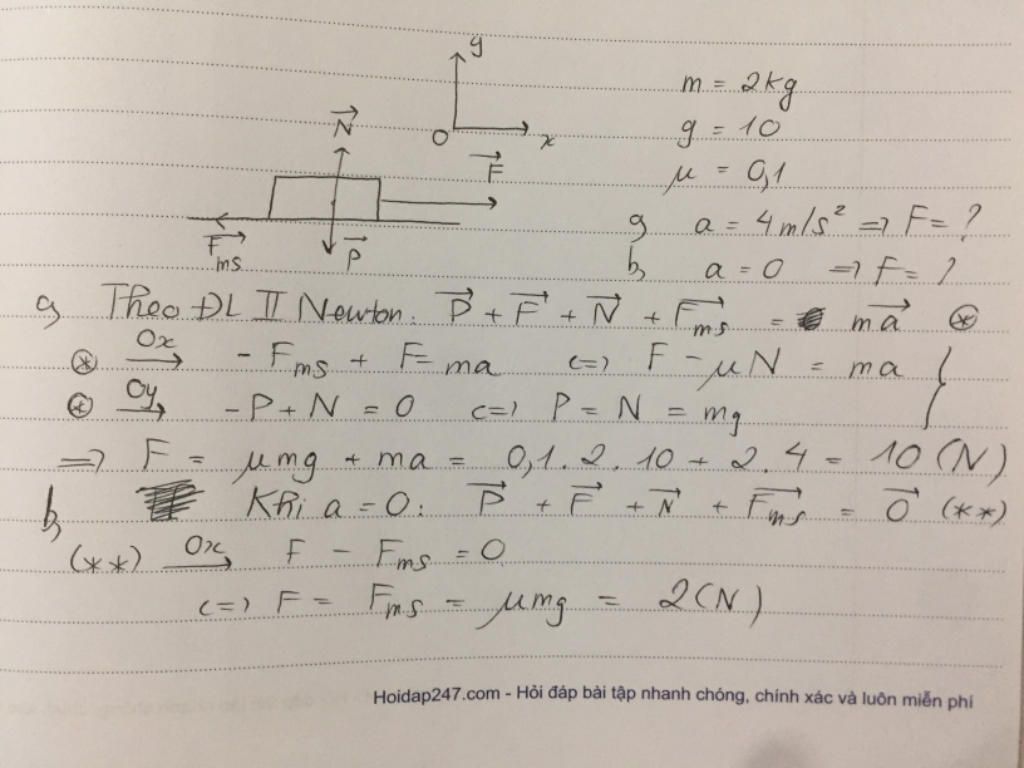 y
O
x
m = 2kg
g = 10
μ = 0,1
a, a = 4m/s² => F = ?
b, a = 0 => F = ?
N
F
Fms
P
a, Theo ĐL II Newton: P + F + N + Fms = ma (*)
(*) Ox → - Fms + F = ma <=> F - μN = ma
(*) Oy → - P + N = 0 <=> P = N = mg
=> F = μmg + ma = 0,1.2.10 + 2.4 = 10 (N)
b, Khi a = 0: P + F + N + Fms = 0 (**)
(**) Ox → F - Fms = 0
<=> F = Fms = μmg = 2(N)
Hoidap247.com - Hỏi đáp bài tập nhanh chóng, chính xác và luôn miễn phí